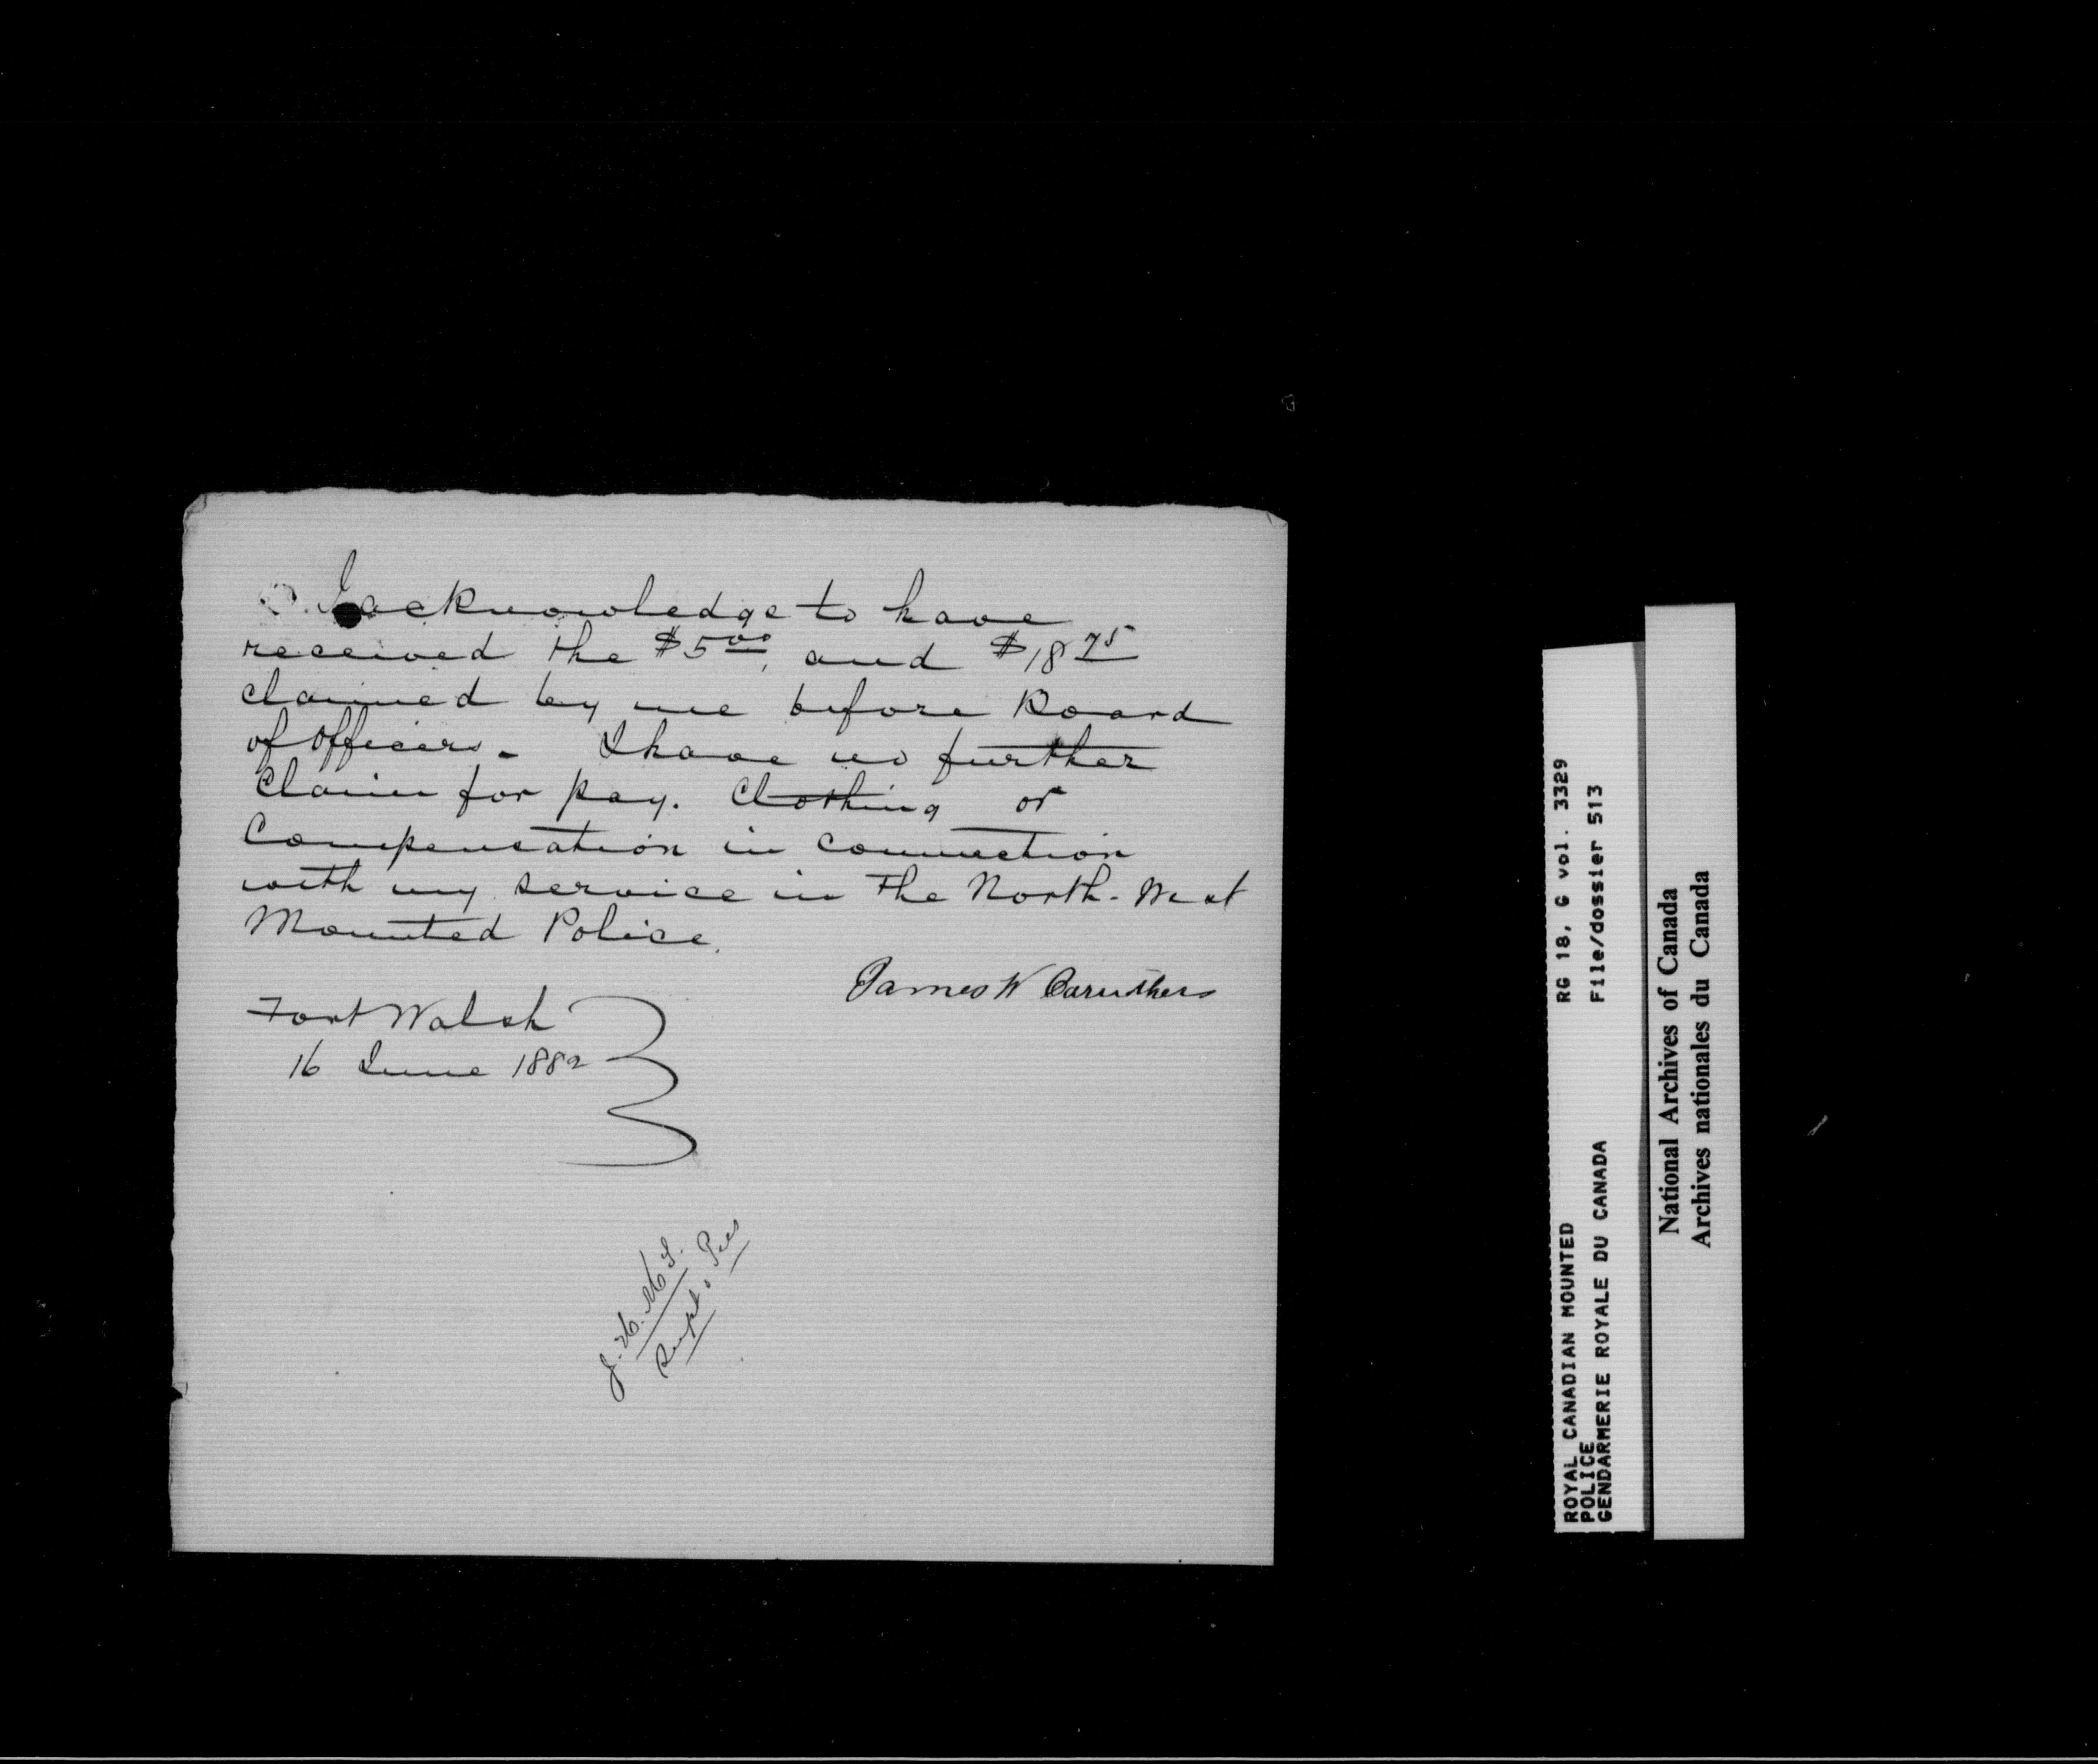 I acknowledge to have
received the $5.00, and $18.75
claimed by me before Board
of officers. I have no further
Claim for pay. Clothing or
Compensation in connection
with my service in the North-West
Mounted Police.
James W Caruthers
Fort Walsh
16 June 1882
Supt. Pres
ROYAL CANADIAN MOUNTED
POLICE
GENDARMERIE ROYALE DU CANADA
RG 18, G vol. 3329
File/dossier 513
National Archives of Canada
Archives nationales du Canada